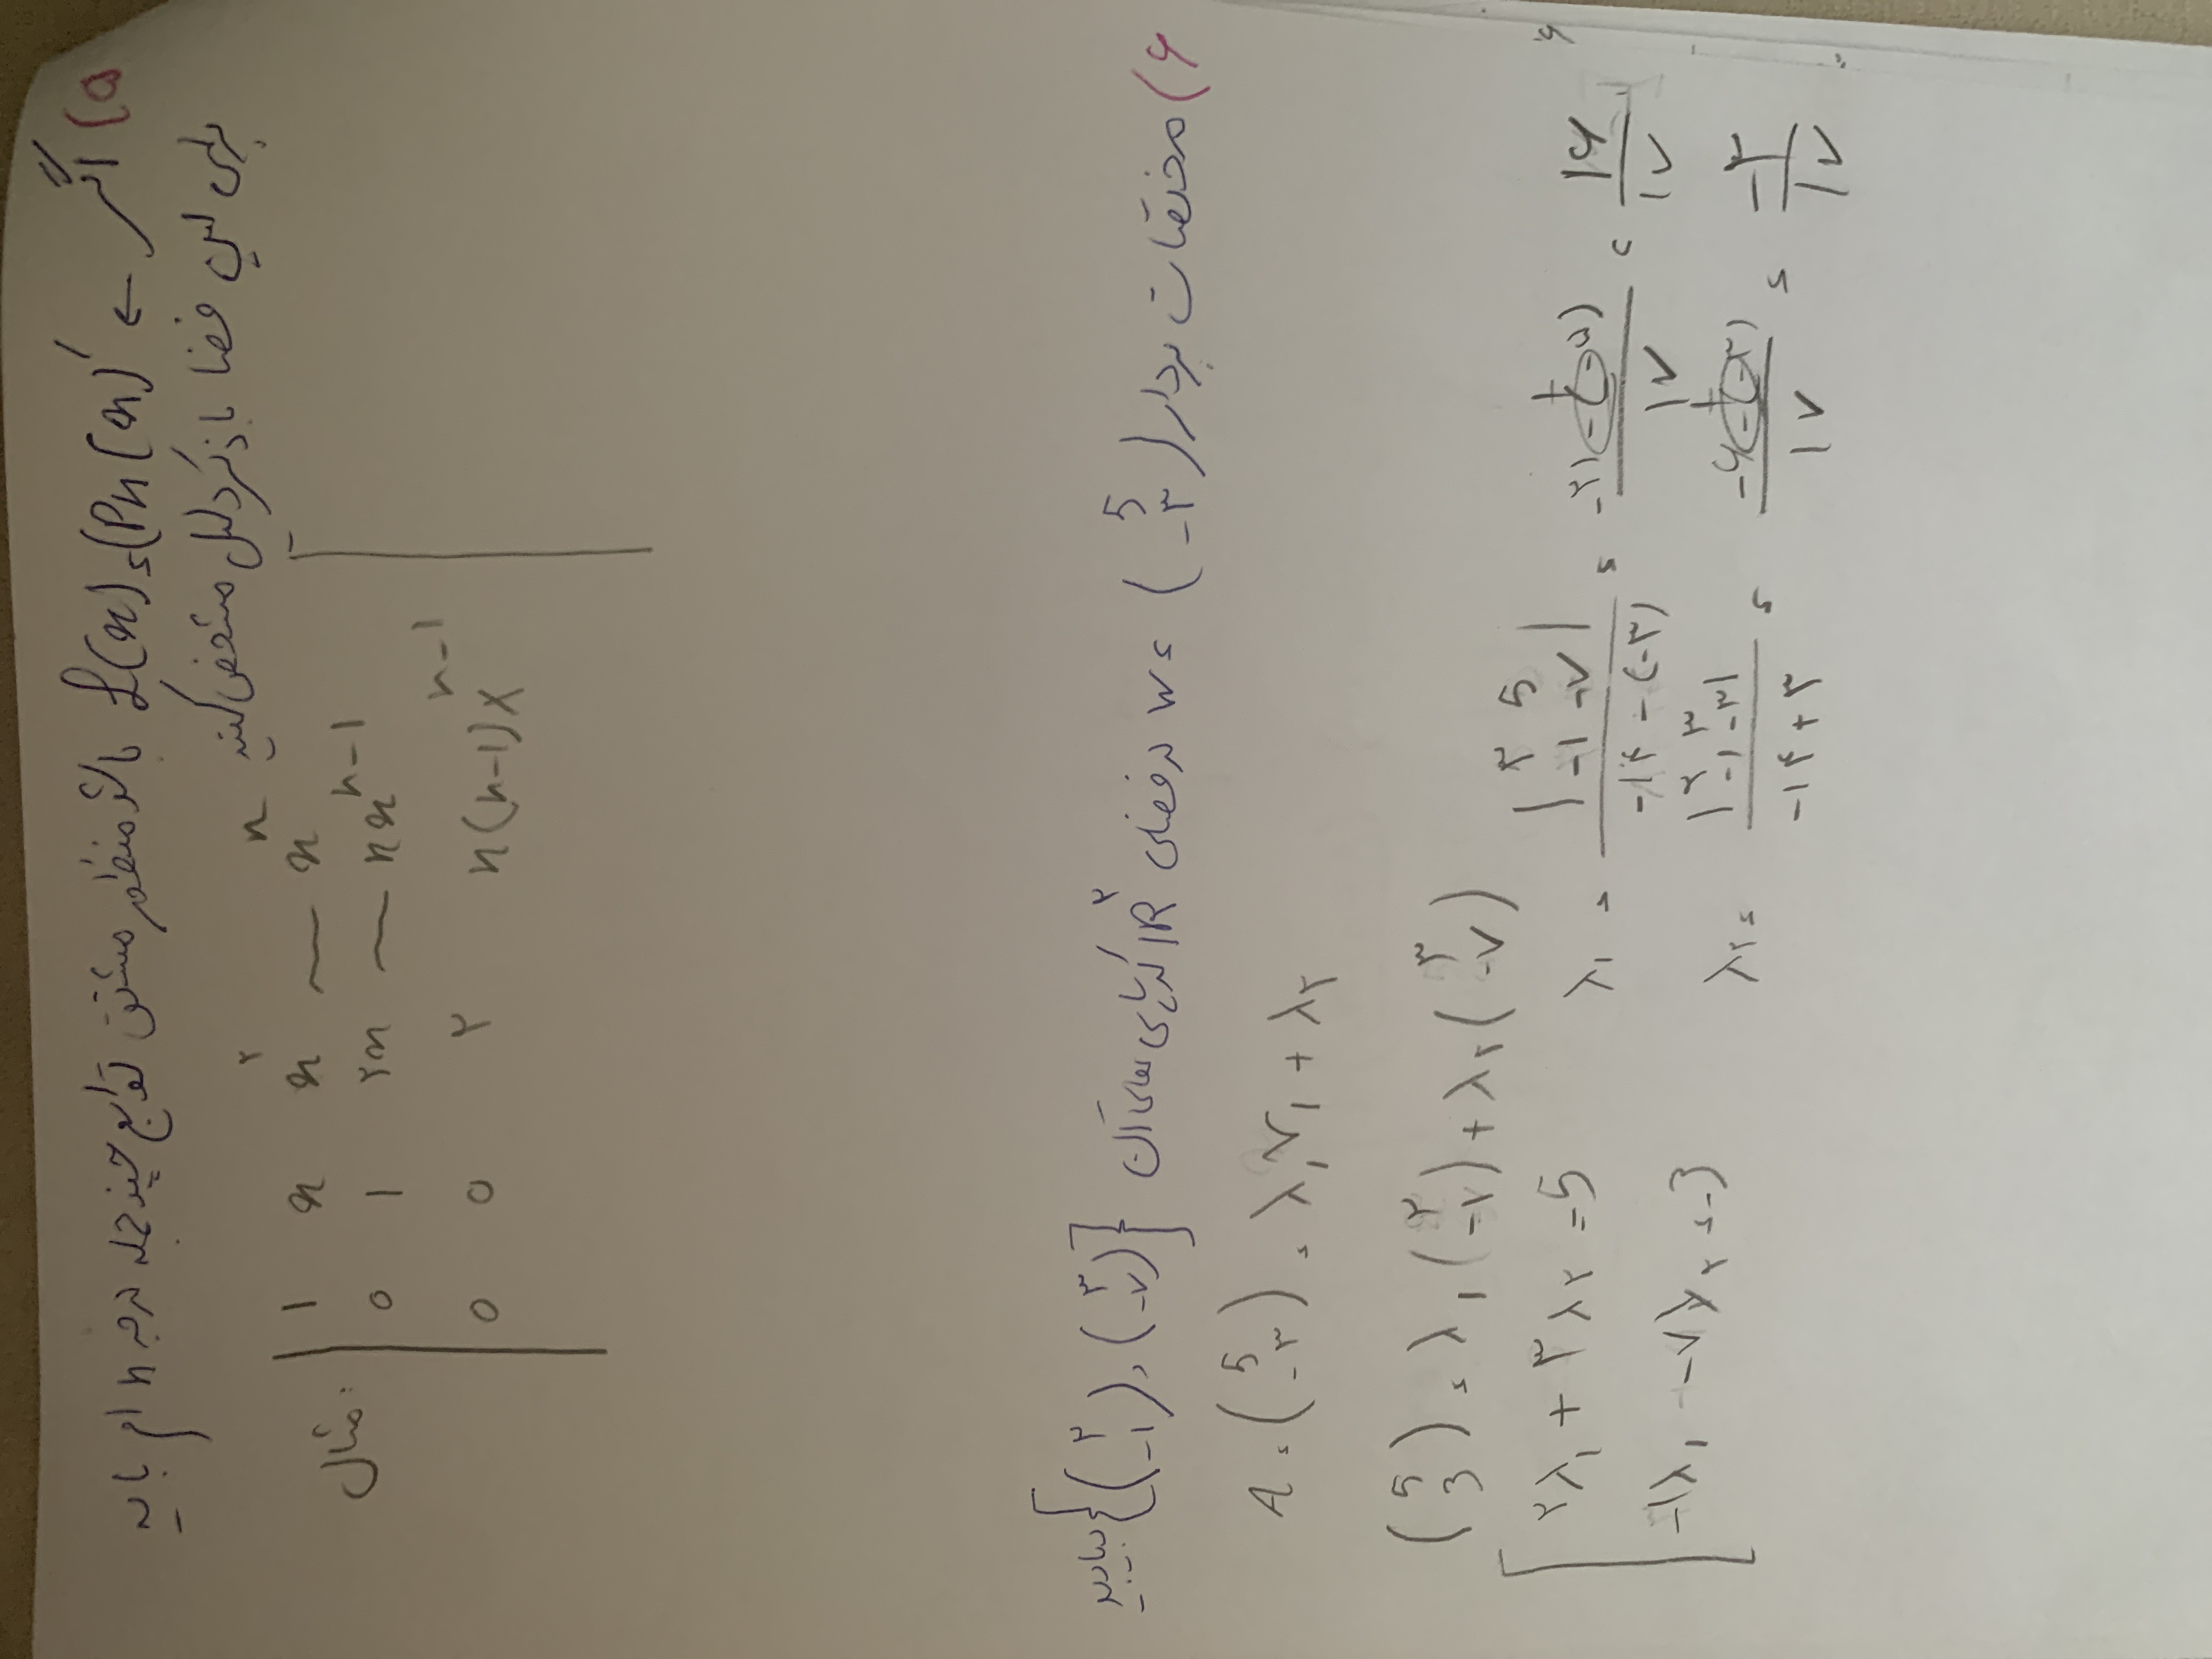 ۵) اگر ← L(x) = (Pn(x))′ باشد منظور مشتق توابع چند جمله درجه n ام پایه
برای این فضا با ذکر دلیل مشخص کنید
مثال: | 1 x x^۲ ~ x^n |
0 1 ۲x ~ nx^n-1
0 0 ۲ n(n-1)x^n-1
۶) مختصات بردار (5 -۳) = w در فضای IR^۲ که پایه های آن {(۲ -۱), (۳ -۷)} بیابید
A = (5 -۳) = λ۱v۱ + λ۲
(5 3) = λ۱(۲ -۱) + λ۲(۳ -۷)
۲λ۱ + ۳λ۲ = 5
-۱λ۱ -۷λ۲ = -3
λ۱ = |۳ 5 -۱ -۷| / -۱۴-(-۳) = -۲۱-(-۵) / ۱۷ = ۱۶/۱۷
λ۲ = |۲ ۳ -۱ -۳| / -۱۴+۳ = -۶-(-۳) / ۱۷ = -۳/۱۷